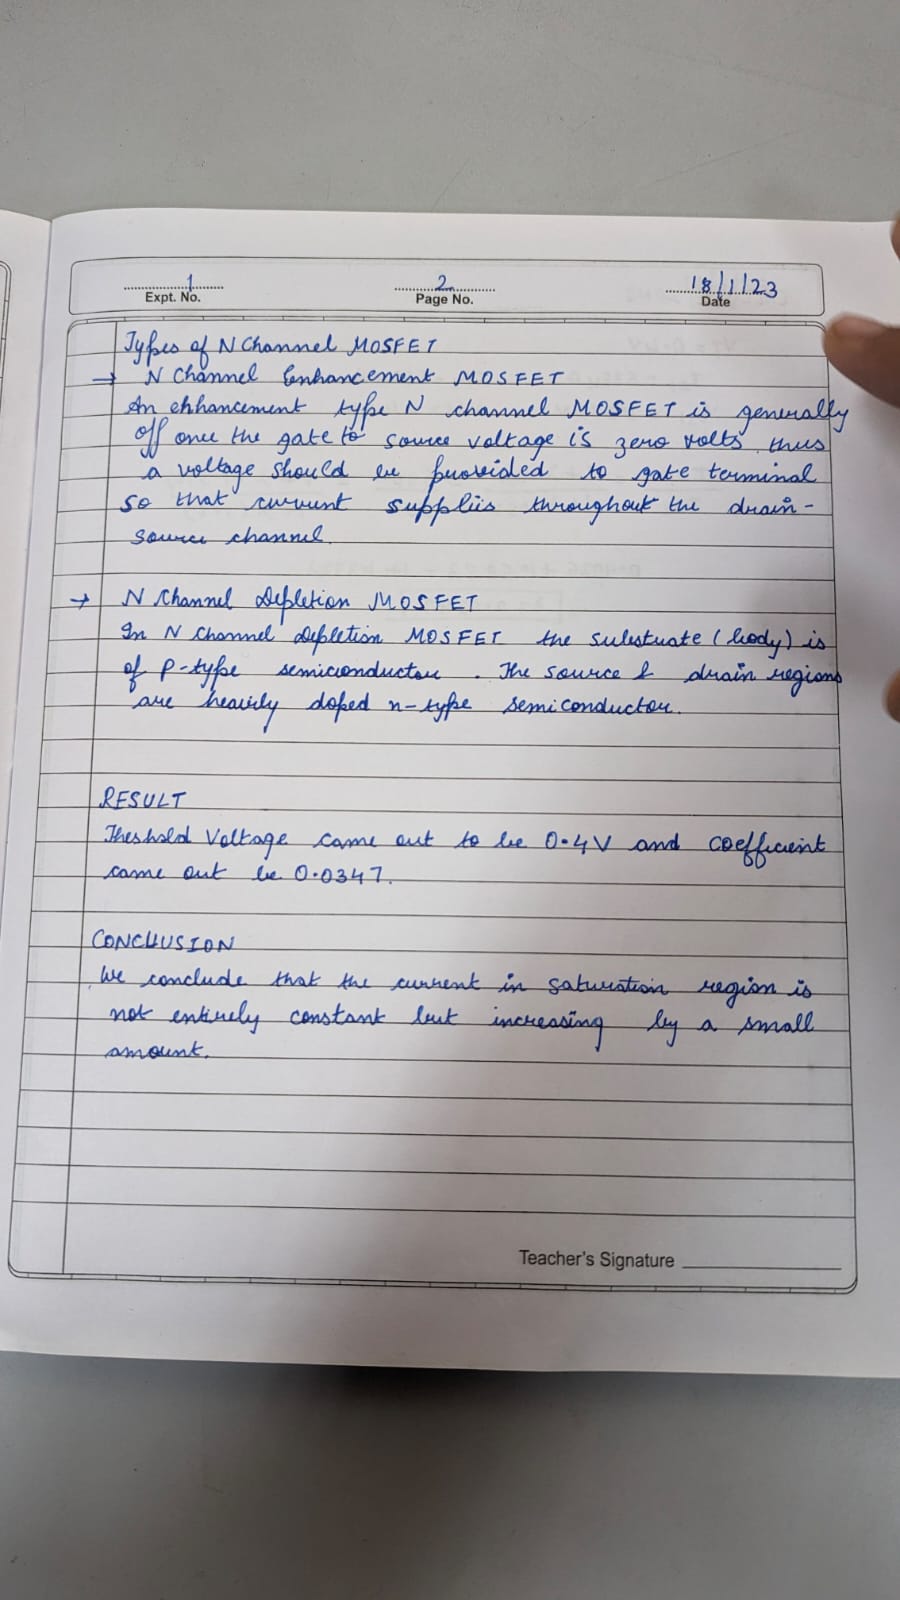 1
Expt. No.
2
Page No.
18/1/23
Date
Types of N Channel MOSFET
→ N Channel Enhancement MOSFET
An ehhancement type N channel MOSFET is generally
off once the gate to source voltage is zero volts thus
a voltage should be provided to gate terminal
so that current supplies throughout the drain-
source channel.
→ N Channel Depletion MOSFET
In N Channel Depletion MOSFET the substrate (body) is
of P-type semiconductor. The source & drain regions
are heavily doped n-type semiconductor.
RESULT
Theshold Voltage came out to be 0.4V and coefficient
came out be 0.0347.
CONCLUSION
We conclude that the current in saturation region is
not entirely constant but increasing by a small
amount.
Teacher's Signature